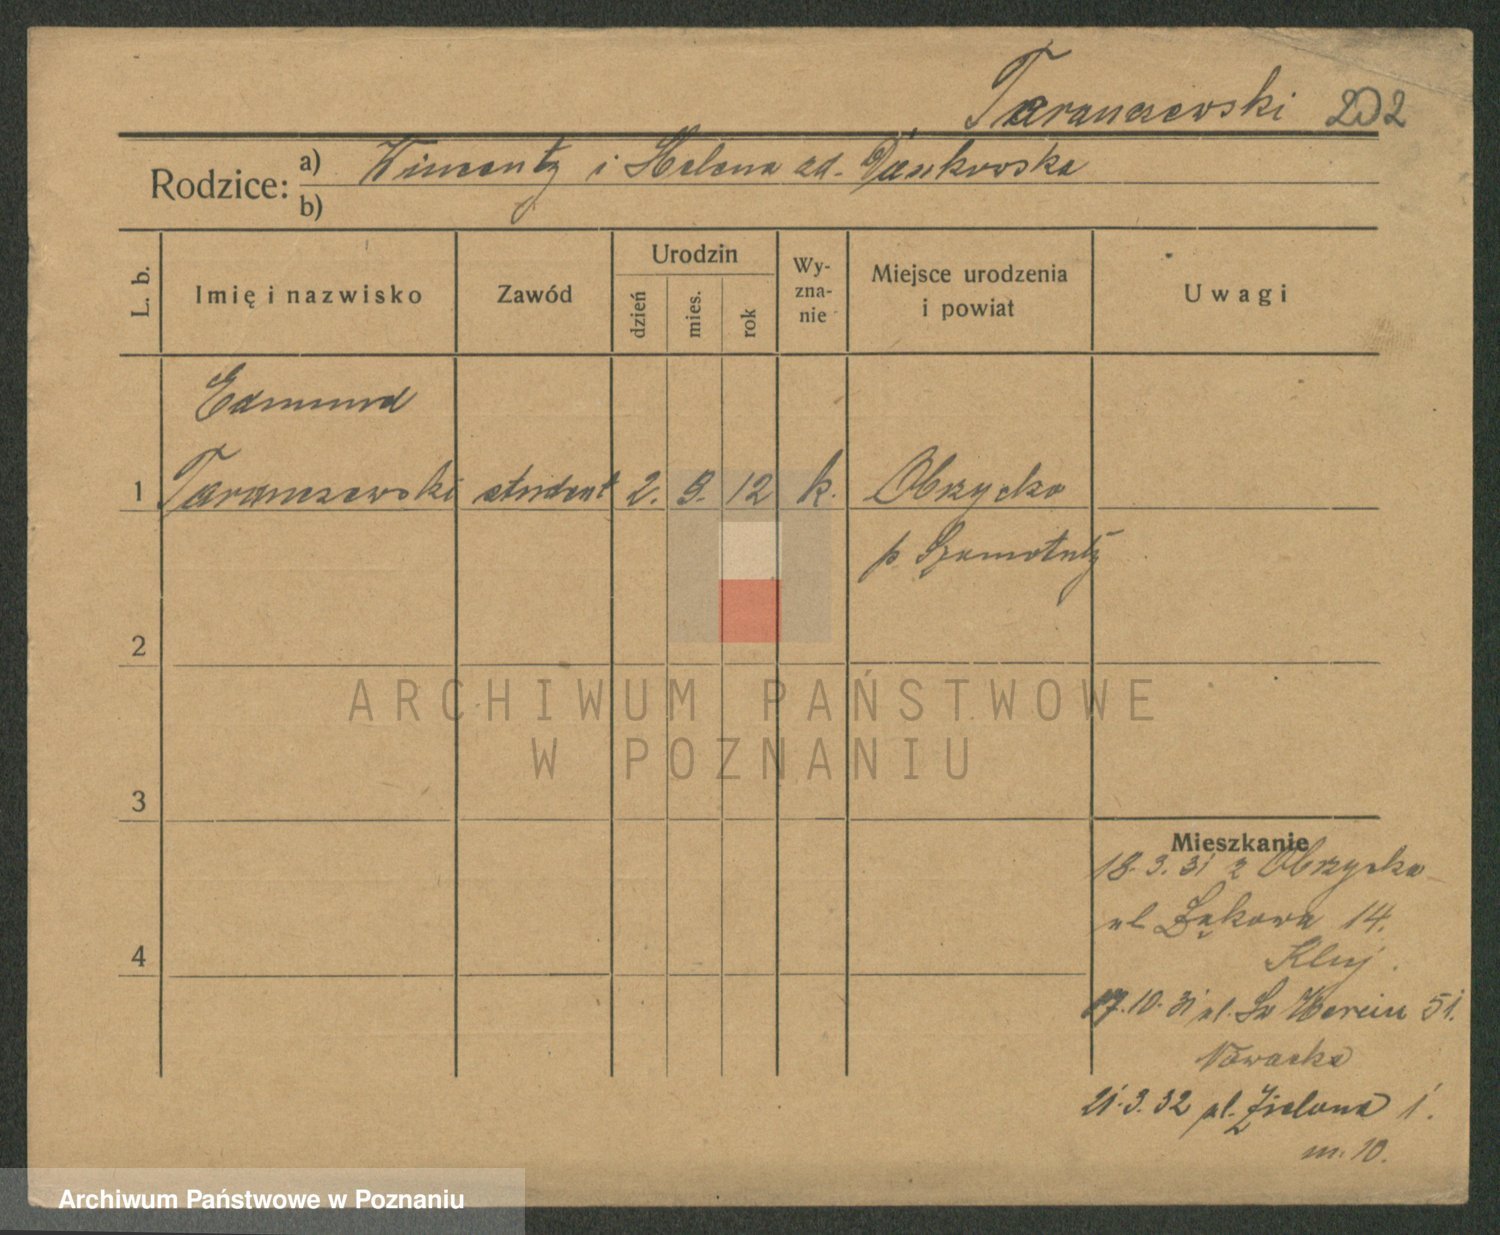 Taranczewski 202
Rodzice: a) Wincenty i Helena zd. Dankowska
b)
L. b.
Imię i nazwisko
Zawód
Urodzin
dzień
mies.
rok
Wy-
zna-
nie
Miejsce urodzenia
i powiat
Uwagi
Edmund
1 Taranczewski student 2. 9. 12 k. Obrzycko
p. Szamotuły
2
ARCHIWUM PAŃSTWOWE
W POZNANIU
3
Mieszkanie
18.3.31 z Obrzycka
ul. Łąkowa 14.
4
17.10.31 ul. Św Marcin 51.
Nowacka
21.3.32 pl. Zielona 1.
m. 10.
Archiwum Państwowe w Poznaniu